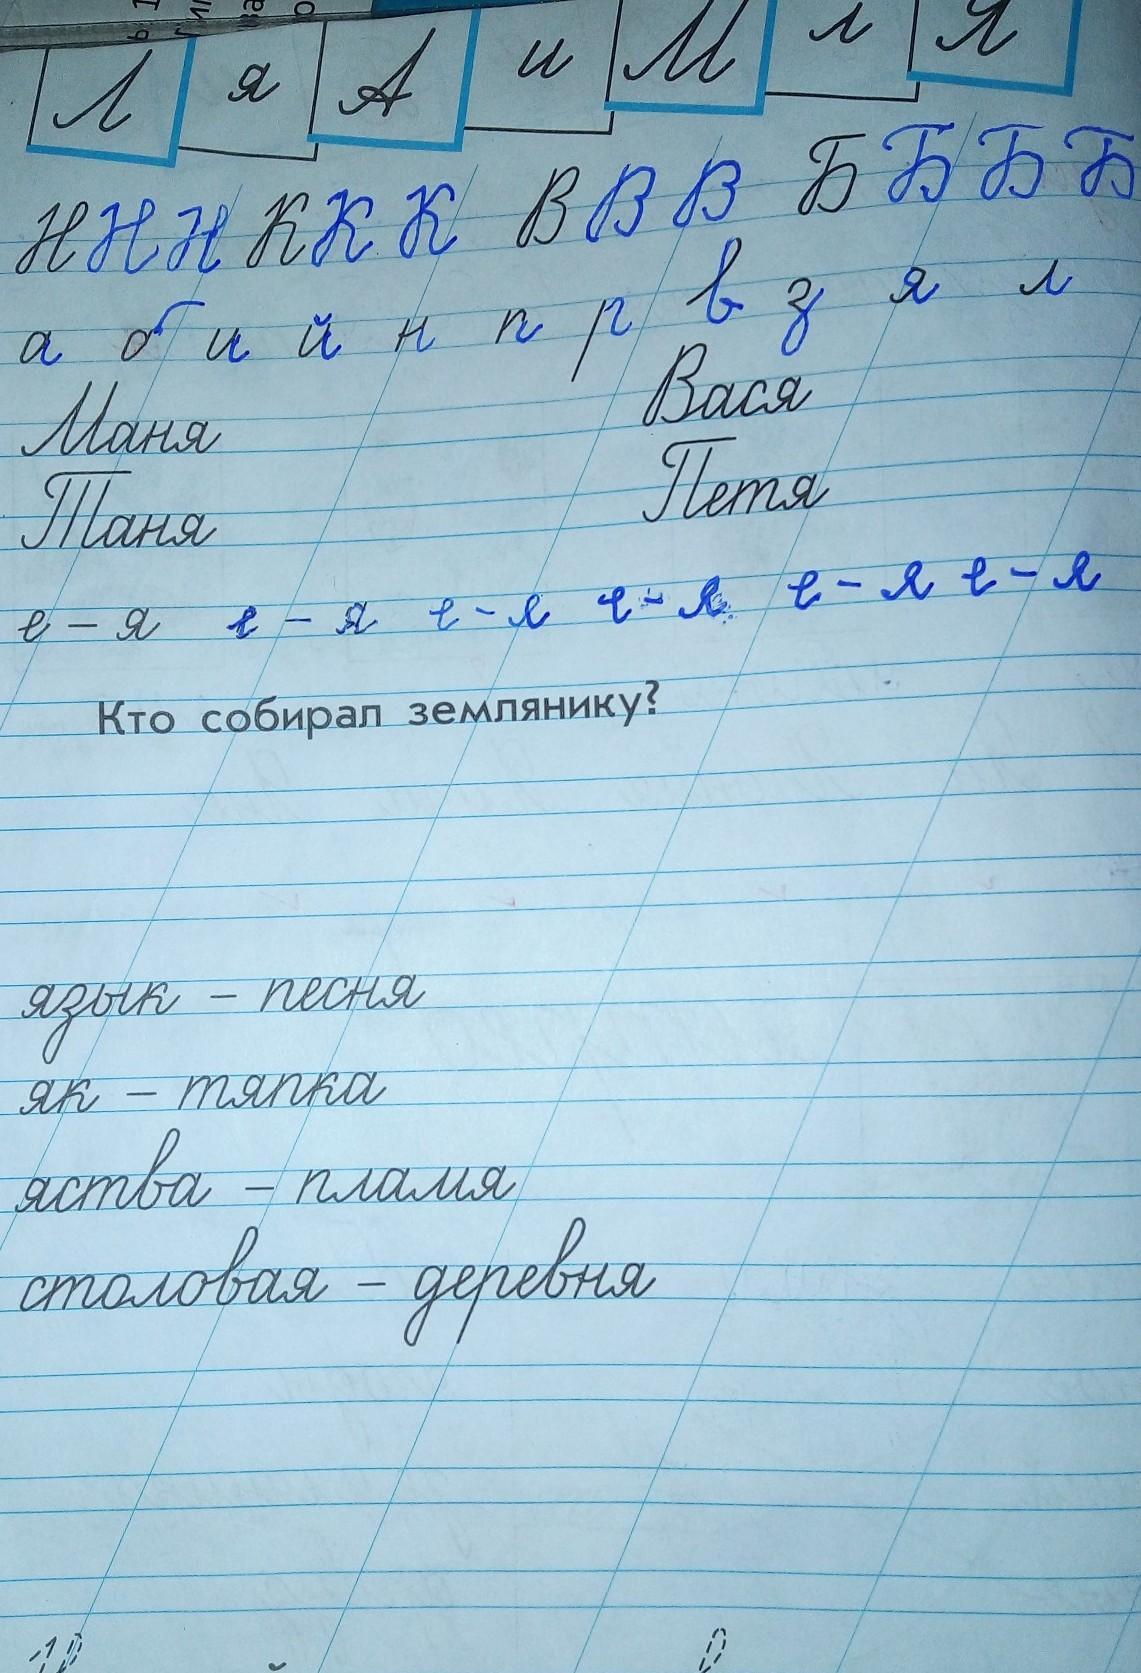 Л я А и М л Я
Н Н Н К К К В В В Б Б Б Б
а б и й н п р в з я л
Маня Вася
Таня Петя
е – я е – я е – я е – я е – я е – я
Кто собирал землянику?
язык – песня
як – тяпка
яства – пламя
столовая – деревня